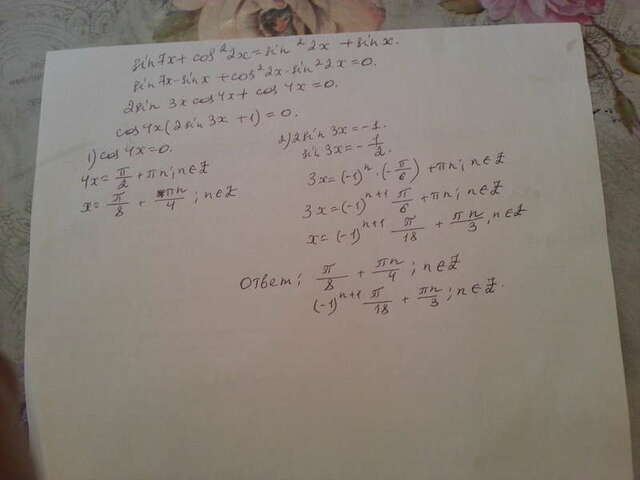 sin 7x + cos² 2x = sin² 2x + sin x.
sin 7x - sin x + cos² 2x - sin² 2x = 0.
2 sin 3x cos 4x + cos 4x = 0.
cos 4x (2 sin 3x + 1) = 0.
1) cos 4x = 0.
4x = π/2 + πn; n ∈ Z
x = π/8 + πn/4 ; n ∈ Z
2) 2 sin 3x = -1.
sin 3x = - 1/2.
3x = (-1)ⁿ · (-π/6) + πn; n ∈ Z
3x = (-1)ⁿ⁺¹ π/6 + πn; n ∈ Z
x = (-1)ⁿ⁺¹ π/18 + πn/3; n ∈ Z
Ответ: π/8 + πn/4 ; n ∈ Z
(-1)ⁿ⁺¹ π/18 + πn/3; n ∈ Z.